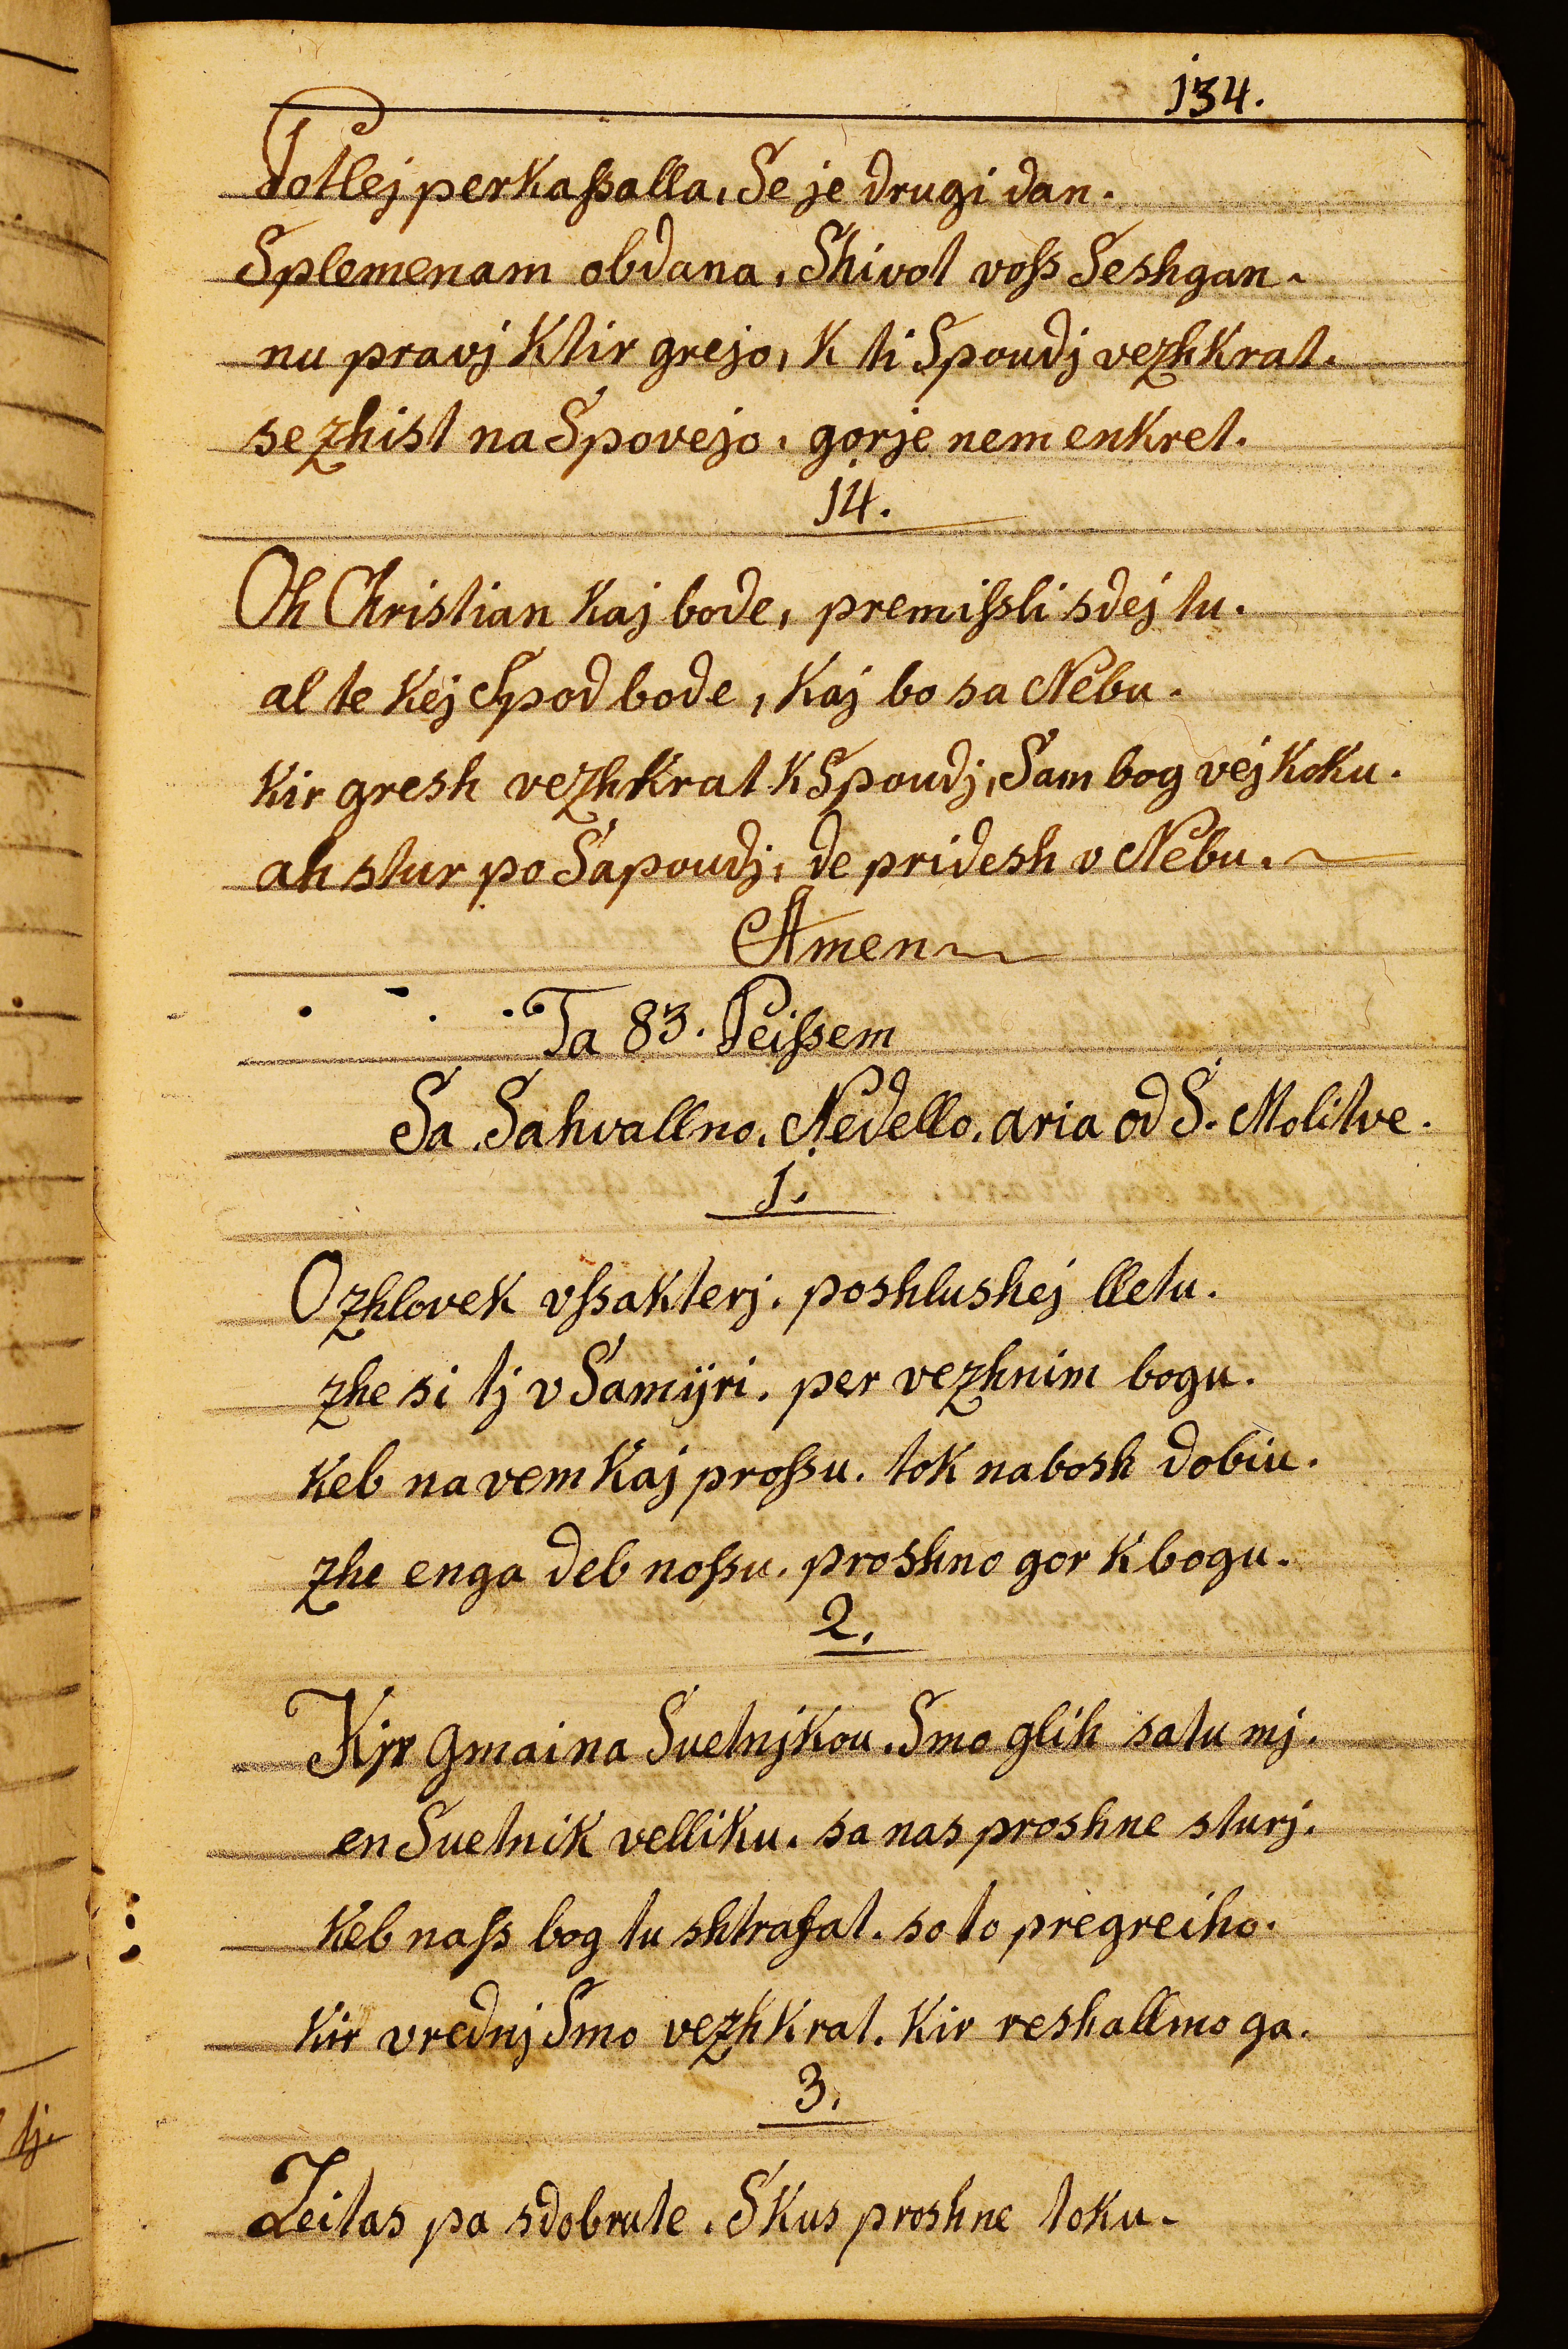 134.
Potlej perkaßalla, Se je drugi dan.
Splemenam obdana, Shivot voß Seshgan.
nu pravj Ktir grejo, K ti Spoudj vezhkrat.
se zhist na Spovejo, gorje nem enkret.
14.
Oh Christian Kaj bode, premißli sdej tu.
al te Kej Spod bode, Kaj bo sa Nebu.
Kir gresh vezhkrat K Spoudj, Sam bog vej Koku.
ah stur po Sapoudj, de pridesh v Nebu.
Amen
Ta 83. Peißem
Sa Sahvallno, Nedello, aria od S. Molitve.
1.
O zhlovek vßakterj. poshlushej lletu.
zhe si tj v Samijri. per vezhnim bogu.
Keb na vem Kaj proßu. tok nabosh dobiu.
zhe enga deb noßu. proshno gor K bogu.
2.
Kjr gmaina Suetnjkou. Smo glih satu mj.
en Suetnik velliku. sa nas proshne sturj.
Keb naß bog tu shtrafat. soto pregreiho.
Kir vrednj Smo vezhkrat. Kir reshallmo ga.
3.
Zeitas pa sdobrute. Skus proshne toku.
tj